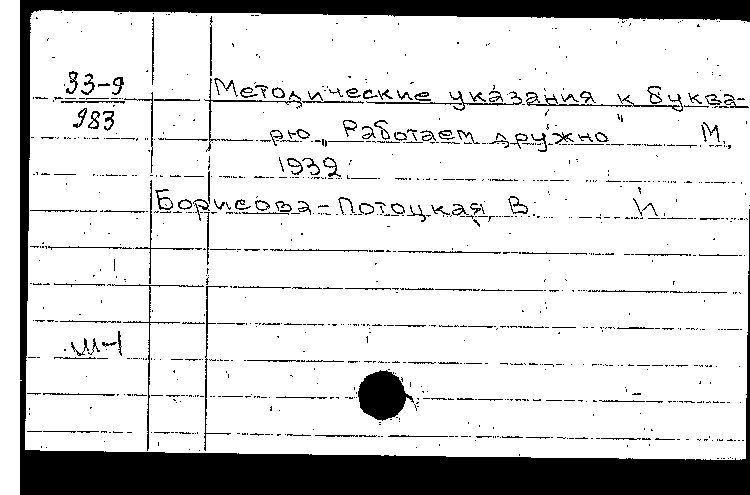 33-9
983
Методические указания к буква-
рю „Работаем дружно" М.,
1932.
Борисова-Потоцкая, В. И.
Ш-1